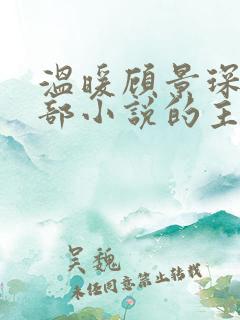 温暖顾景琛
部小说的主
吴魏
未经同意禁止转载